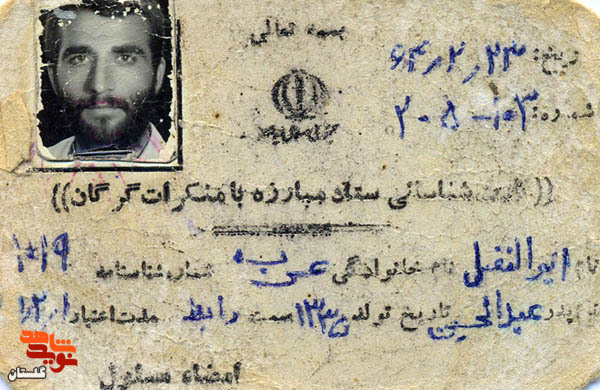 بسمه تعالی
تاریخ: ۶۴/۲/۲۳
شماره: ۲۰۸-۱۰۳
((کارت شناسائی ستاد مبارزه با منکرات گرگان))
نام ابوالفضل نام خانوادگی عرب شماره شناسنامه ۱۰۱۹
نام پدر عبدالحسین تاریخ تولد سمت رابط مدت اعتبار
امضاء مسئول
شاهد
نوید
گلستان